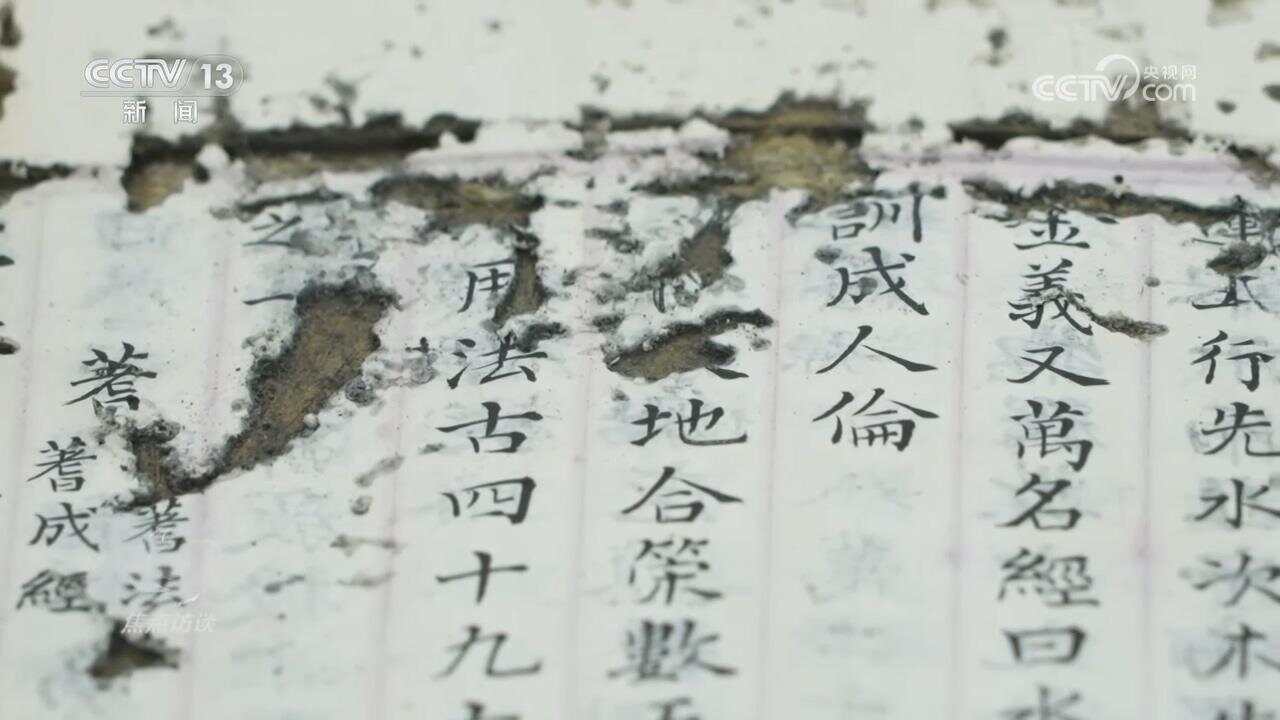 CCTV 13
新闻
CCTV 央视网
com
行先水次木
金義又萬名經曰水
訓成人倫
地合策數五
用法古四十九
之一
蓍
蓍法
蓍成經
焦点访谈